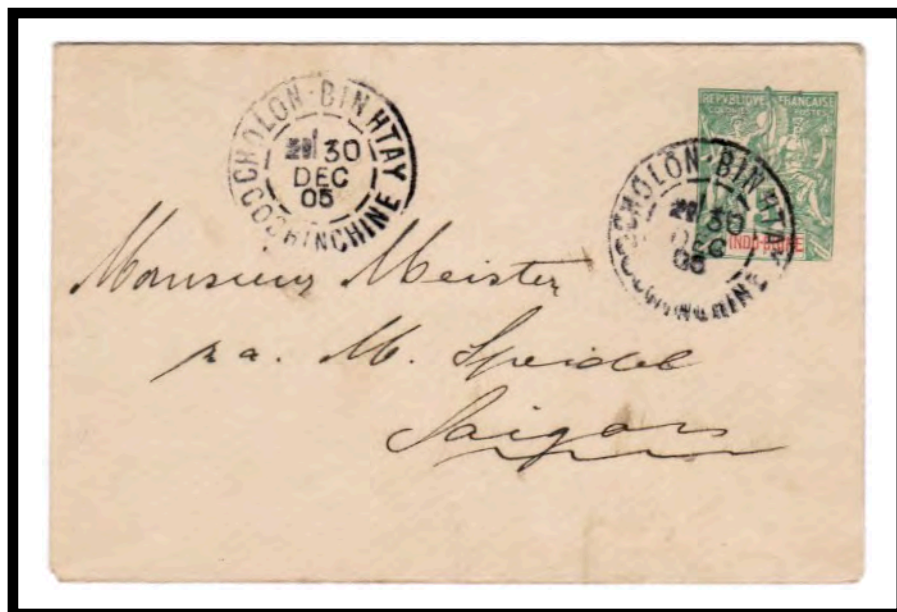 CHOLON-BINHTAY
30
DEC
05
COCHINCHINE
REPVBLIQVE FRANÇAISE
COLONIES POSTES
INDO-CHINE
CHOLON-BINHTAY
30
DEC
05
COCHINCHINE
Monsieur Meister
p a. M. Speidel
Saigon